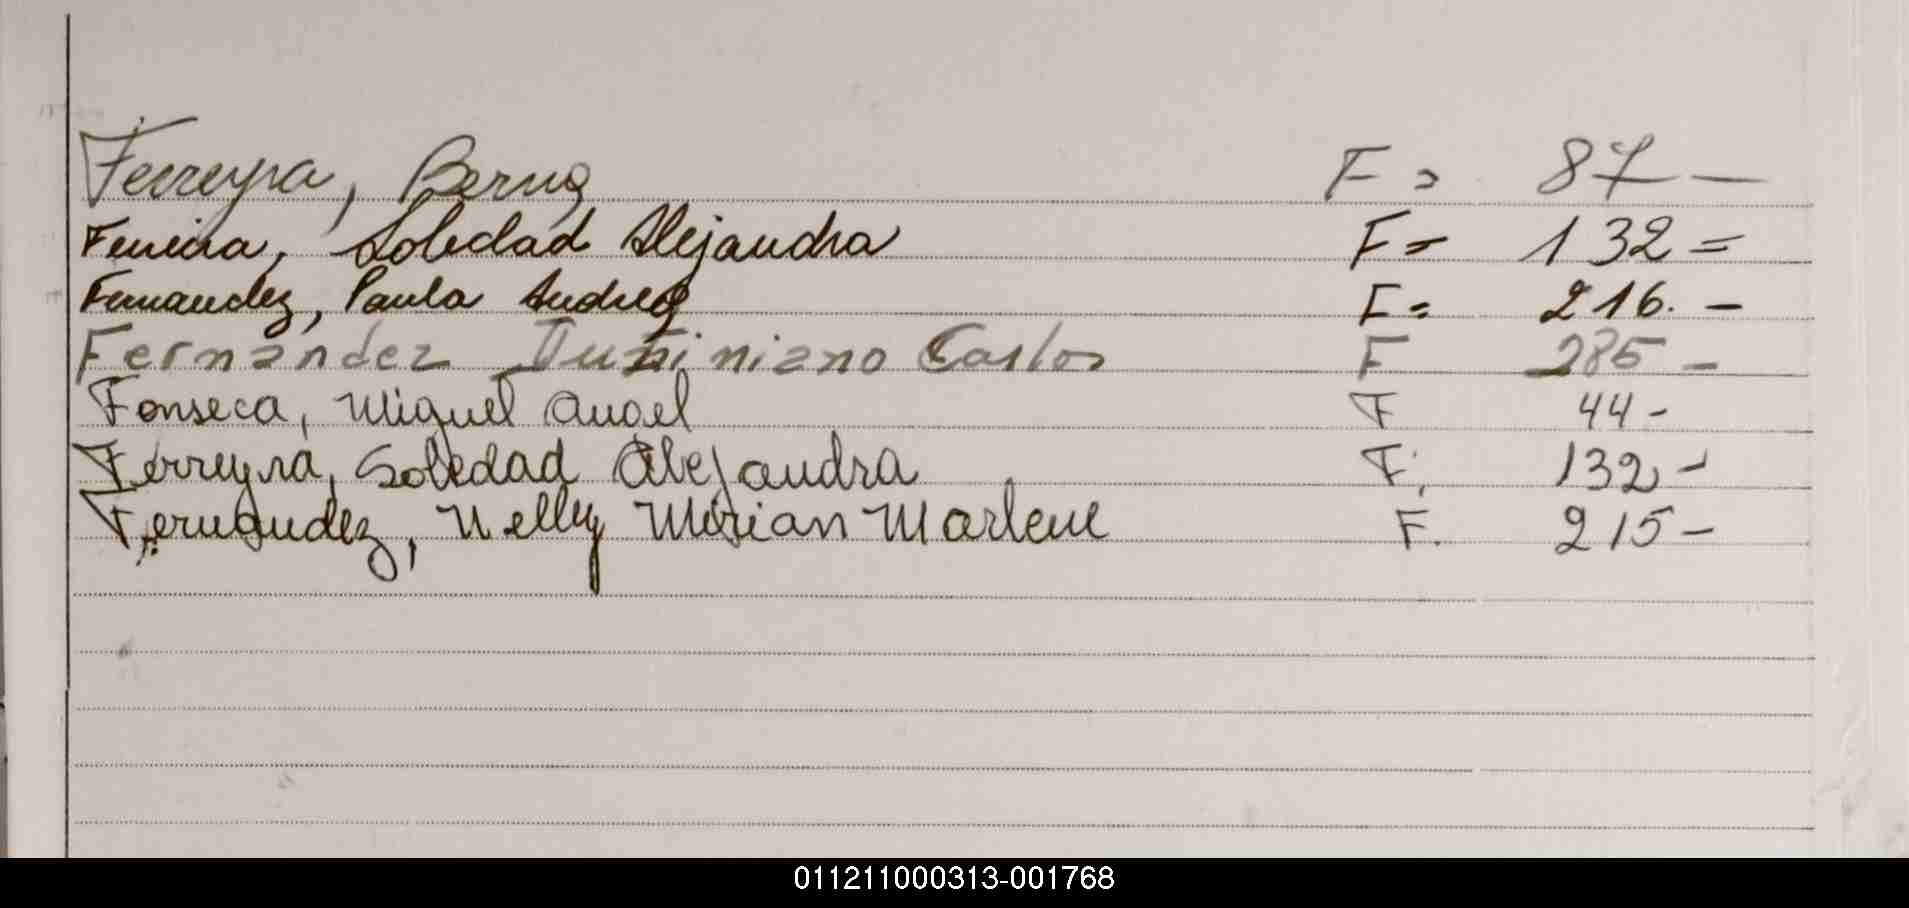 Ferreyra, Berna F= 87 -
Ferreira, Soledad Alejandra F= 132=
Fernandez, Paula Andrea F= 216. -
Fernandez Justiniano Carlos F 285 -
Fonseca, Miguel Angel F 44-
Ferreyra, Soledad Alejandra F. 132-
Fernandez, Nelly Mirian Marlene F. 215-
011211000313-001768